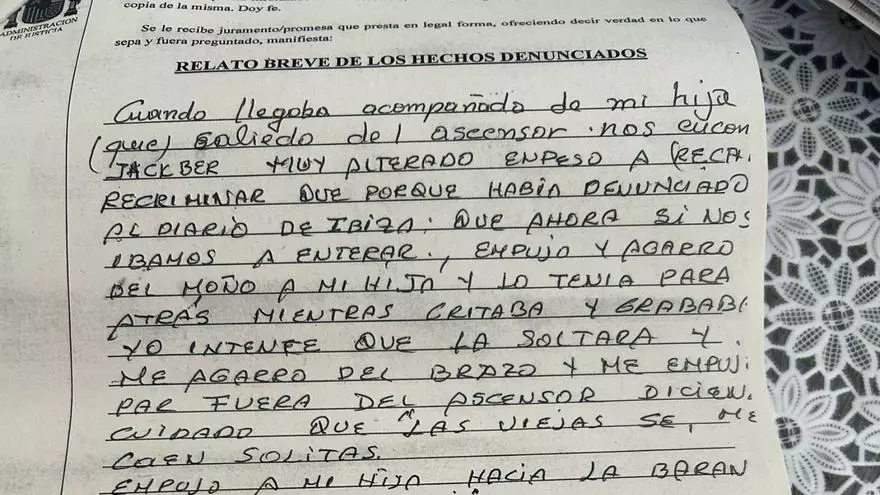 ADMINISTRACION
DE JUSTICIA
copia de la misma. Doy fe.
Se le recibe juramento/promesa que presta en legal forma, ofreciendo decir verdad en lo que
sepa y fuera preguntado, manifiesta:
RELATO BREVE DE LOS HECHOS DENUNCIADOS
Cuando llegoba acompañada de mi hija
(que) saliedo del ascensor nos encon
JACKBER MUY ALTERADO ENPESO A (RECA.
RECRIMINAR QUE PORQUE HABÍA DENUNCIADO
AL DIARIO DE IBIZA: QUE AHORA SI NOS
IBAMOS A ENTERAR., EMPUJO Y AGARRO
DEL MOÑO A MI HIJA Y LO TENIA PARA
ATRÁS MIENTRAS GRITABA Y GRABABA
YO INTENTE QUE LA SOLTARA Y
ME AGARRO DEL BRAZO Y ME EMPUJ
PAR FUERA DEL ASCENSOR DICIEN
CUIDADO QUE "LAS VIEJAS SE, ME
CAEN SOLITAS.
EMPUJO A MI HIJA HACIA LA BARAN